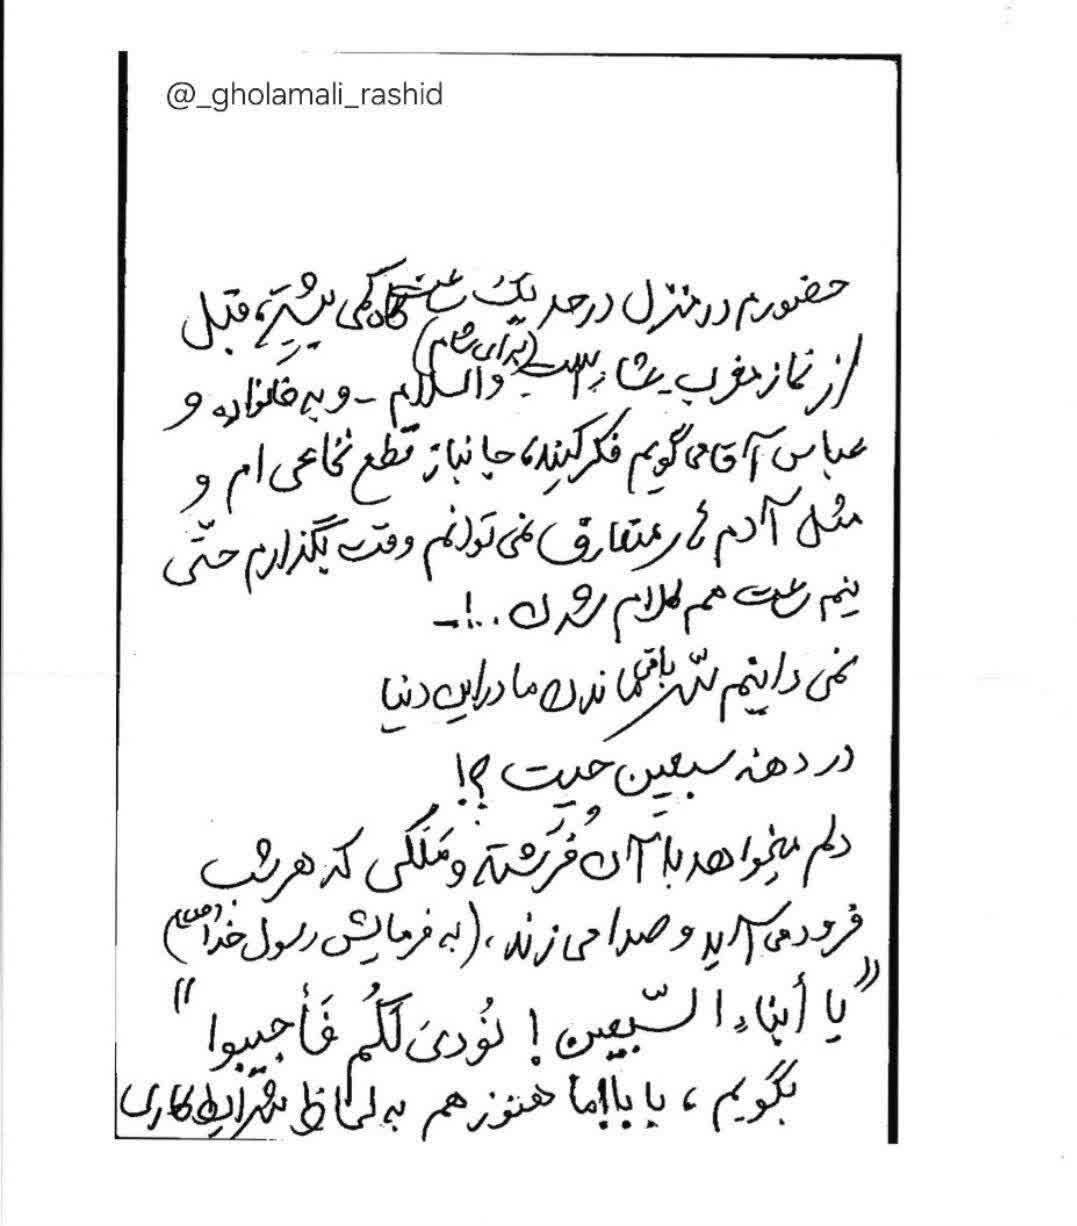 @_gholamali_rashid
حضورم در منزل در حد یک ساعت گاه کمی بیشتر، قبل
(برای شام)
از نماز مغرب و عشاء است والسلام - و به خانواده و
عباس آقا می گویم فکر کنید، جانباز قطع نخاعی ام و
مثل آدم های متعارف نمی توانم وقت بگذارم حتّی
نیم ساعت هم کلام شدن ..!-
نمی دانیم سّر باقیماندن ما در این دنیا
در دهه سبعین چیست ؟!
دلم میخواهد با آن فرشته و مَلَکی که هر شب
فرود می آید و صدا می زند، (به فرمایش رسول خدا (ص))
"یا أبناءِ السّبعین ! نُودیَ لَکُم فَأجیبوا"
بگویم، بابا اما هنوز هم به لحاظ شرایط کاری